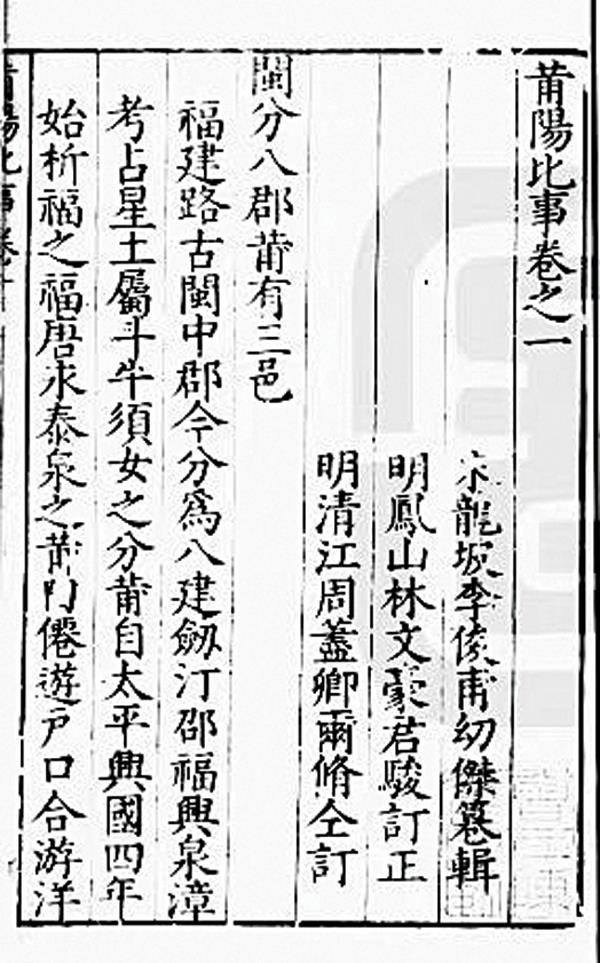 莆陽比事卷之一
宋龍坡李俊甫幼傑篹輯
明鳳山林文豪君駿訂正
明清江周藎卿爾脩仝訂
閩分八郡莆有三邑
福建路古閩中郡今分爲八建劔汀邵福興泉漳
考占星土屬斗牛須女之分莆自太平興國四年
始析福之福唐永泰泉之莆門僊遊戶口合游洋
莆陽比事卷一